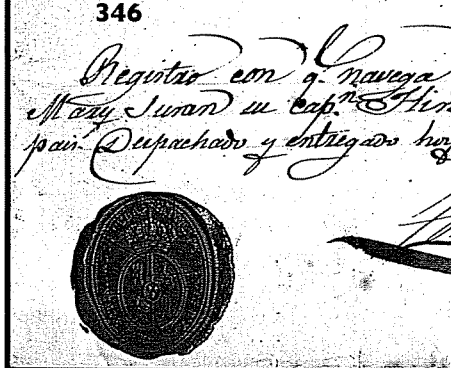 346
Registro con q.e navega
Mary Susan su cap.n Hin
pais. Despachado y entregado hoy